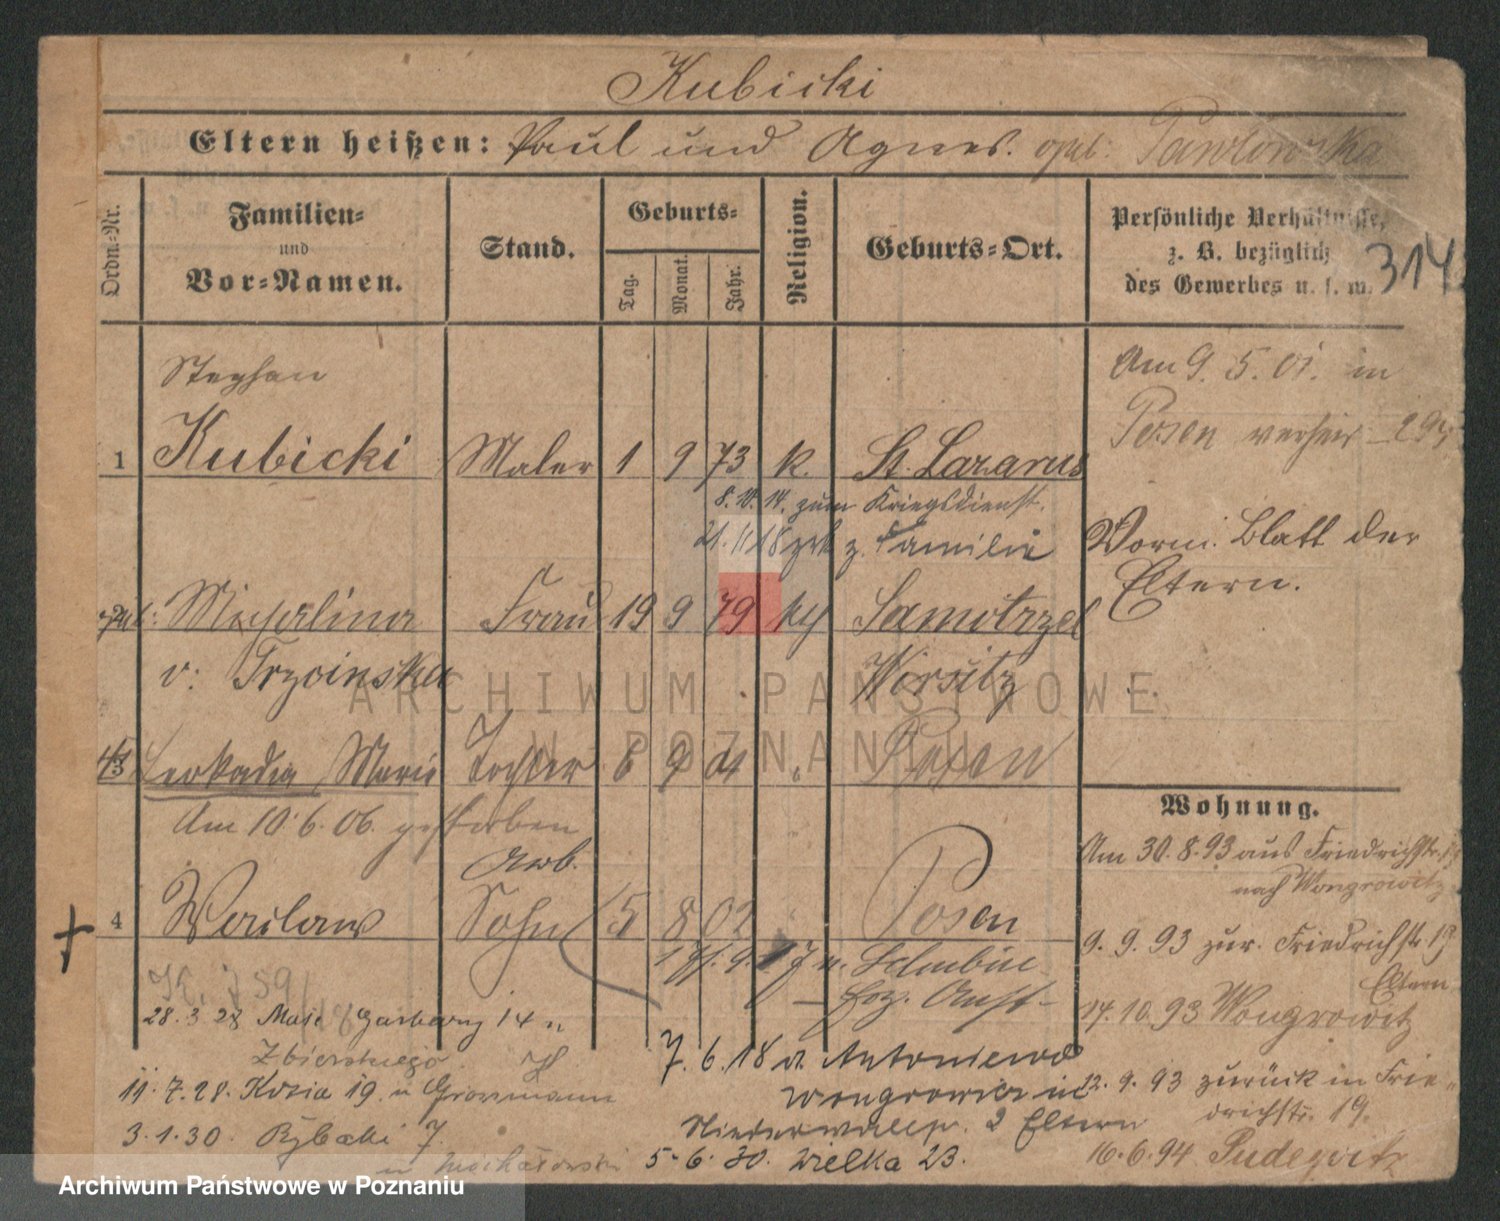 Kubicki
Eltern heißen: Paul und Agnes. Pawlowska
Ordn.-Nr.
Familien-
und
Vor-Namen.
Stand.
Geburts-
Tag.
Monat.
Jahr.
Religion.
Geburts-Ort.
Persönliche Verhältnisse,
z. B. bezüglich
des Gewerbes u. s. w.
314
Stephan
1 Kubicki Maler 1 9 73 k. St. Lazarus
8. 10. 14. zum Kriegsdienst.
21. 11. 18 z. Familie
Michalina Frau 19 9 79 Samotrzel
v: Trzcinska Wirsitz
3 Leokadia Marie Tochter 6 9 01 Posen
Am 10. 6. 06. gestorben
Arb.
4 Waclaw Sohn 5 8 02 Posen
Schubin
Am 9. 5. 01. in
Posen verheir
Vorm. Blatt der
Eltern.
Wohnung.
Am 30. 8. 93 aus Friedrichstr.
nach Wongrowitz
9. 9. 93 zur. Friedrichstr 19
Eltern
17. 10. 93 Wongrowitz
12. 9. 93 zurück in Frie-
drichstr. 19.
16. 6. 94 Pudewitz
28. 3. 28 Garbary 14
Zbierskiego
11. 7. 28. Kozia 19. u Grossmann
3. 1. 30. Rybaki 7.
7. 6. 18 Antoniewo
Wongrowitz in
Niederwallstr. 2 Eltern
5. 6. 30. Wielka 23.
ARCHIWUM PAŃSTWOWE
W POZNANIU
Archiwum Państwowe w Poznaniu